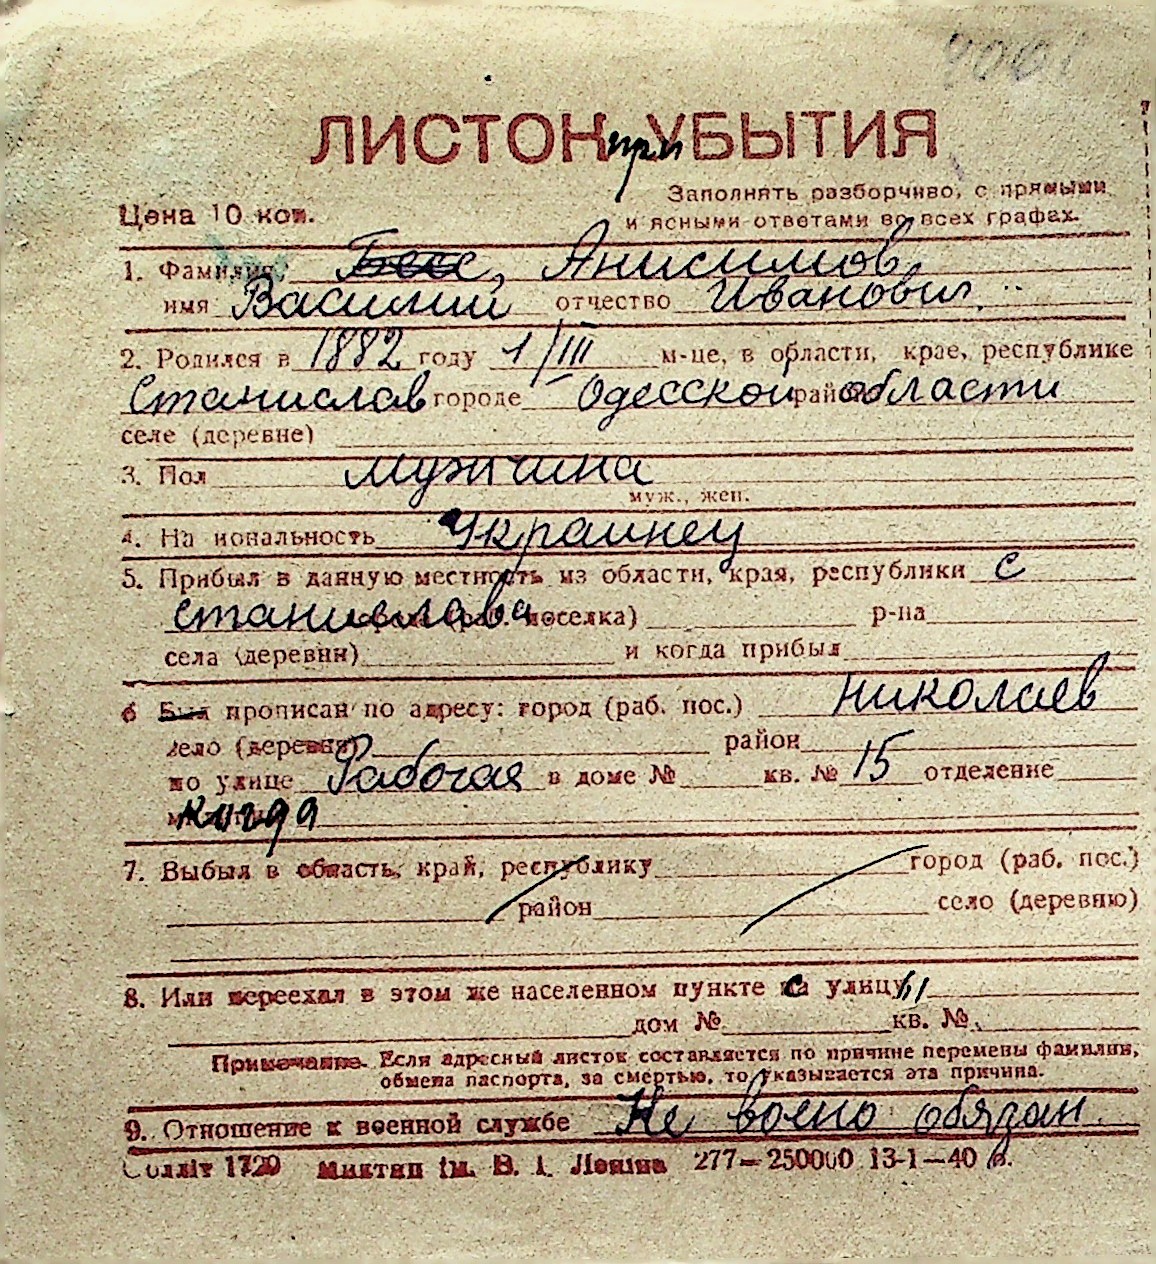 ЛИСТОК при УБЫТИЯ
Заполнять разборчиво, с прямыми
Цена 10 коп.
и ясными ответами во всех графах.
1. Фамилия Бесс, Анисимов
имя Василий отчество Иванович
2. Родился в 1882 году 1/III м-це, в области, крае, республике
Станислав городе Одесской районе области
селе (деревне)
3. Пол мужчина
муж., жен.
4. На иональность Украинец
5. Прибыл в данную местность из области, края, республики с
Станислава поселка) р-на
села (деревни) и когда прибыл
6 Был прописан по адресу: город (раб. пос.) Николаев
село (деревня) район
по улице Рабочая в доме № кв. № 15 отделение
когда
7. Выбыл в область, край, республику город (раб. пос.)
район село (деревню)
8. Или переехал в этом же населенном пункте с улицы
дом № кв. №
Примечание. Если адресный листок составляется по причине перемены фамилии,
обмена паспорта, за смертью, то указывается эта причина.
9. Отношение к военной службе Не воено обязан.
Облліт 1720 Миктип ім. В. І. Леніна 277—250000 13-1—40 р.